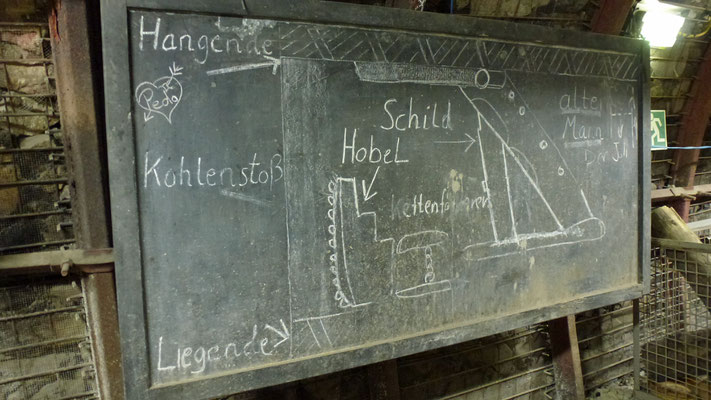 Hangende
Pedro
Schild
Hobel
alter
Mann
Kohlenstoß
Kettenförderer
Liegende